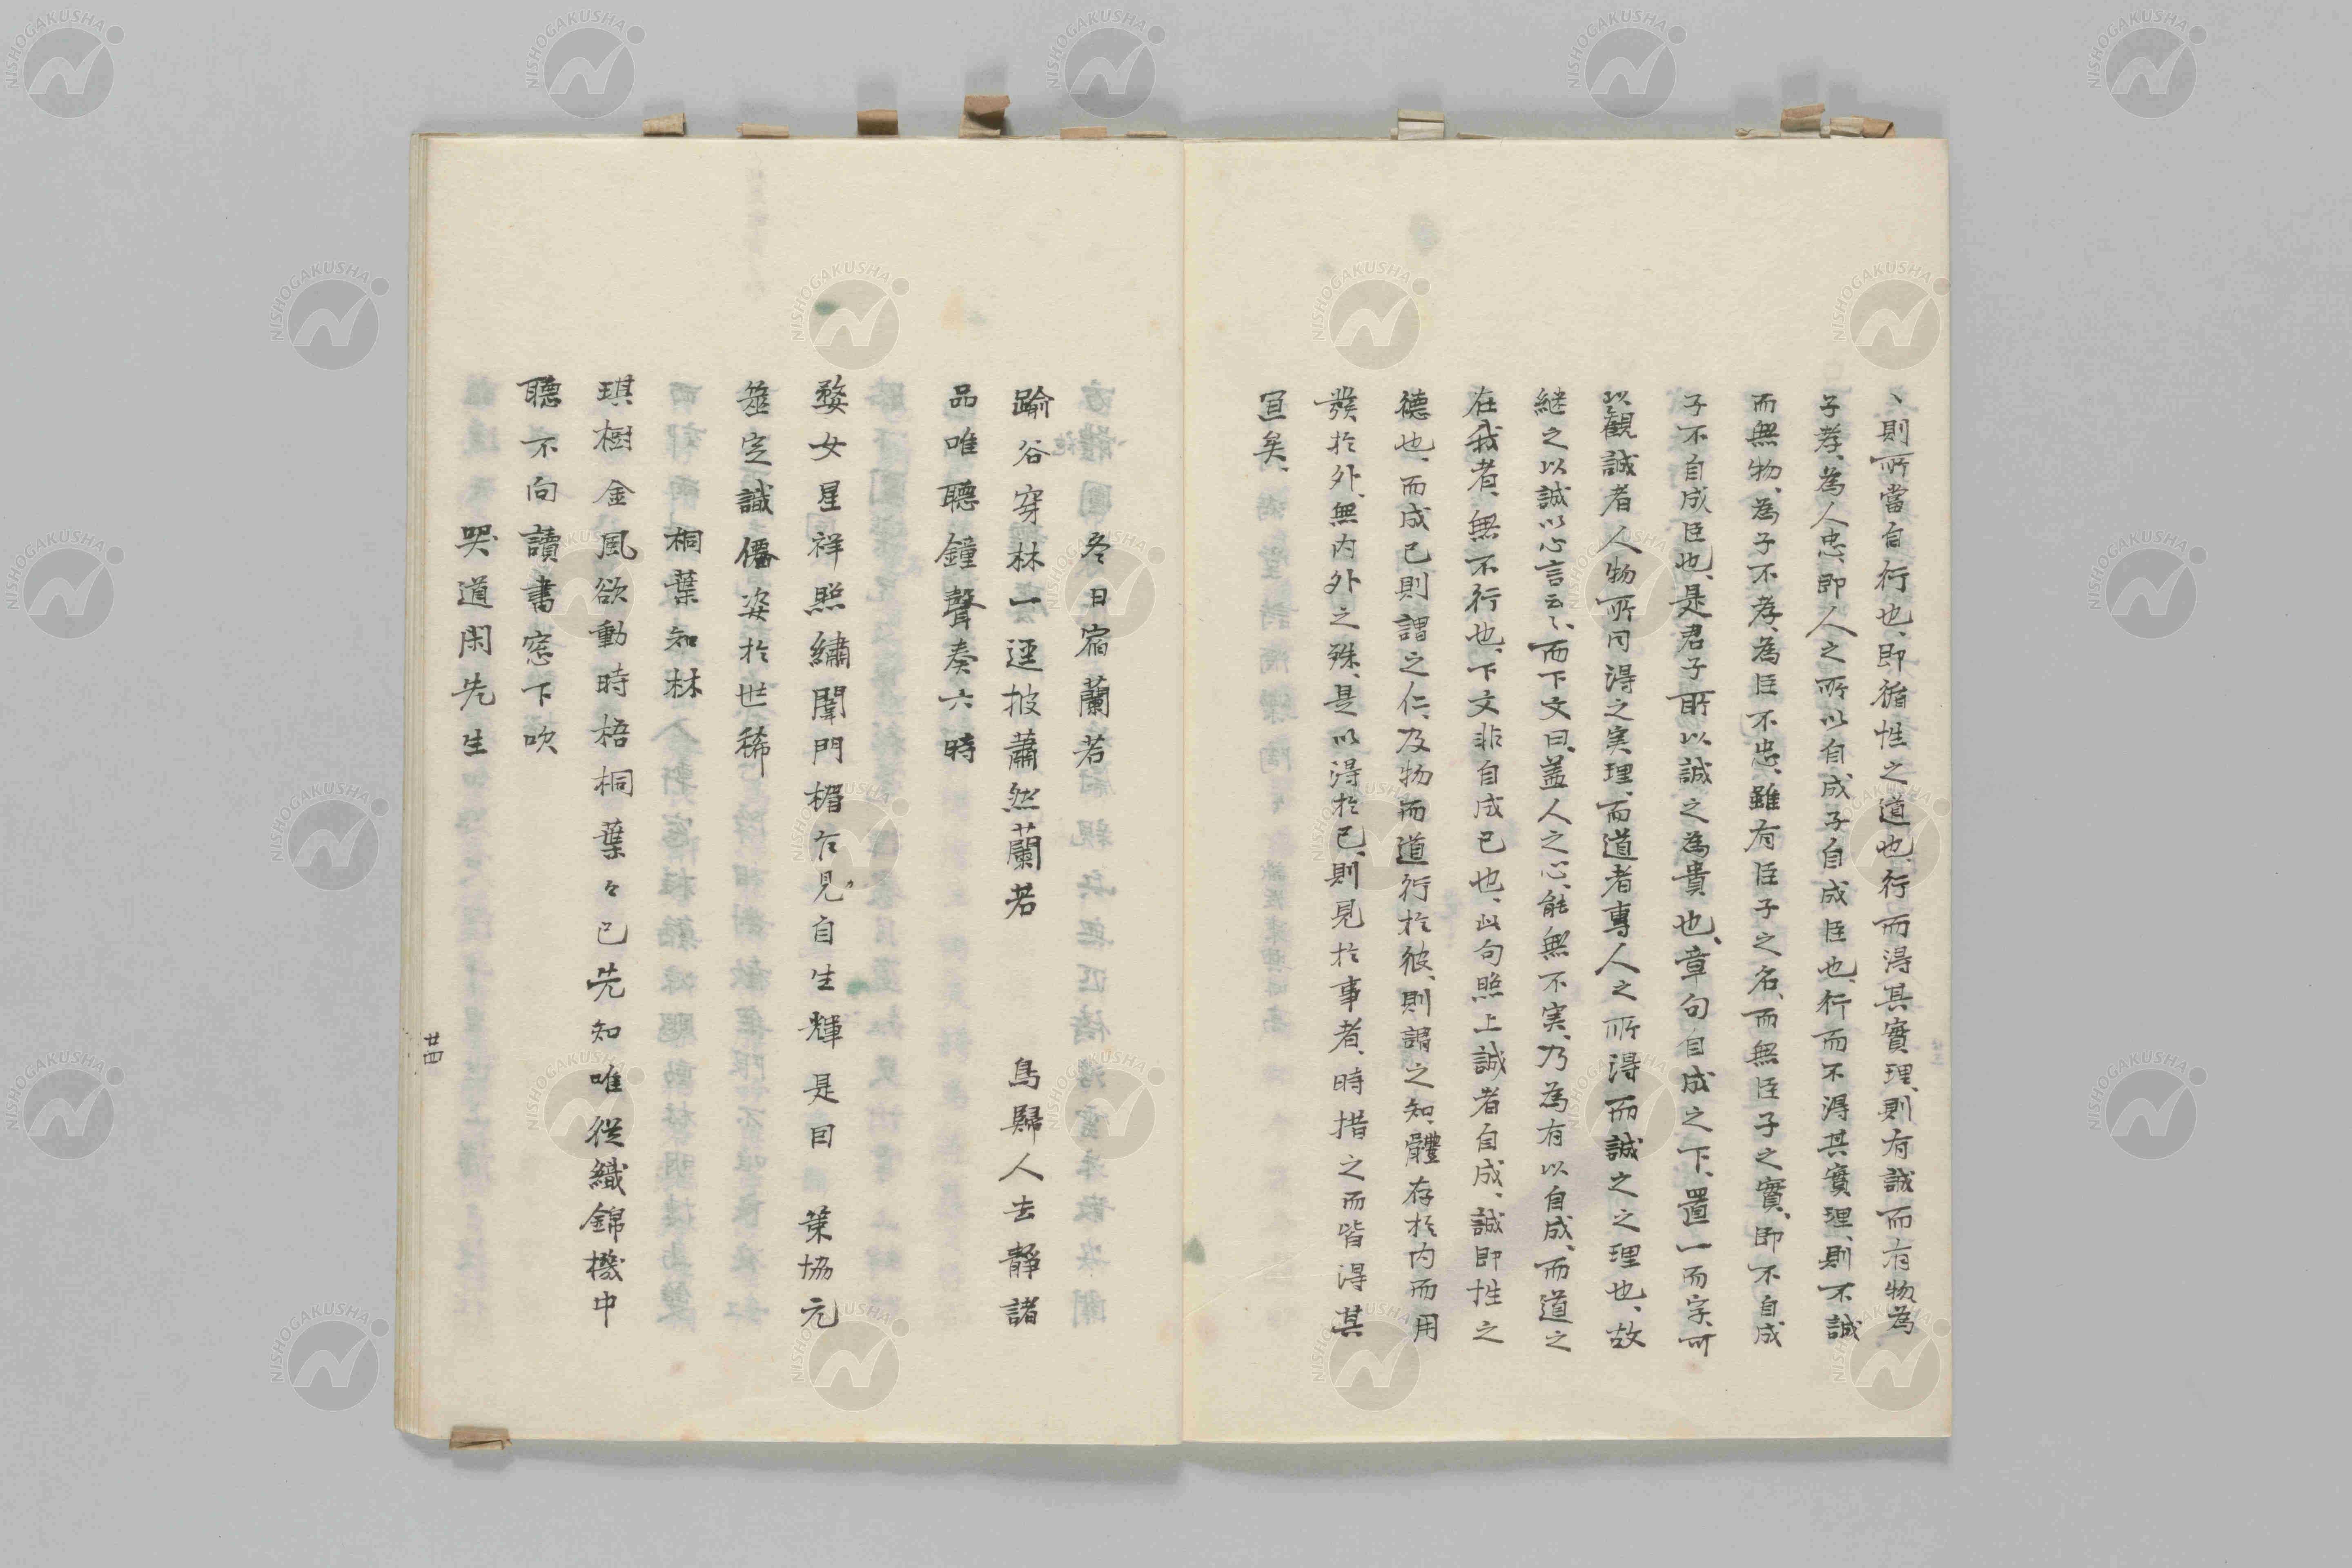 、則所當自行也、即循性之道也、行而得其實理、則有誠而有物、為
子孝、為人忠、即人之所以自成子自成臣也、行而不得其實理、則不誠
而無物、為子不孝、為臣不忠、雖有臣子之名、而無臣子之實、即不自成
子不自成臣也、是君子所以誠之為貴也、章句自成之下、置一而字、可
以觀誠者人物所同得之実理、而道者專人之所得而誠之之理也、故
継之以誠以心言云々、而下文曰、蓋人之心、能無不実、乃為有以自成、而道之
在我者、無不行也、下文非自成己也、此句照上誠者自成、誠即性之
德也、而成己則謂之仁、及物而道行於彼、則謂之知、體存於内而用
發於外、無内外之殊、是以得於己、則見於事者、時措之而皆得其
宜矣、
冬日宿蘭若
踰谷穿林一逕披蕭然蘭若 鳥歸人去靜諸
品唯聽鐘聲奏六時
婺女星祥照繡闈門楣乍見自生輝是因 策協元
筮定識僊姿於世稀
桐葉知秌
琪樹金風欲動時梧桐葉々已先知唯從織錦機中
聽不向讀書窓下吹
哭道閑先生
廿四
NISHOGAKUSHA